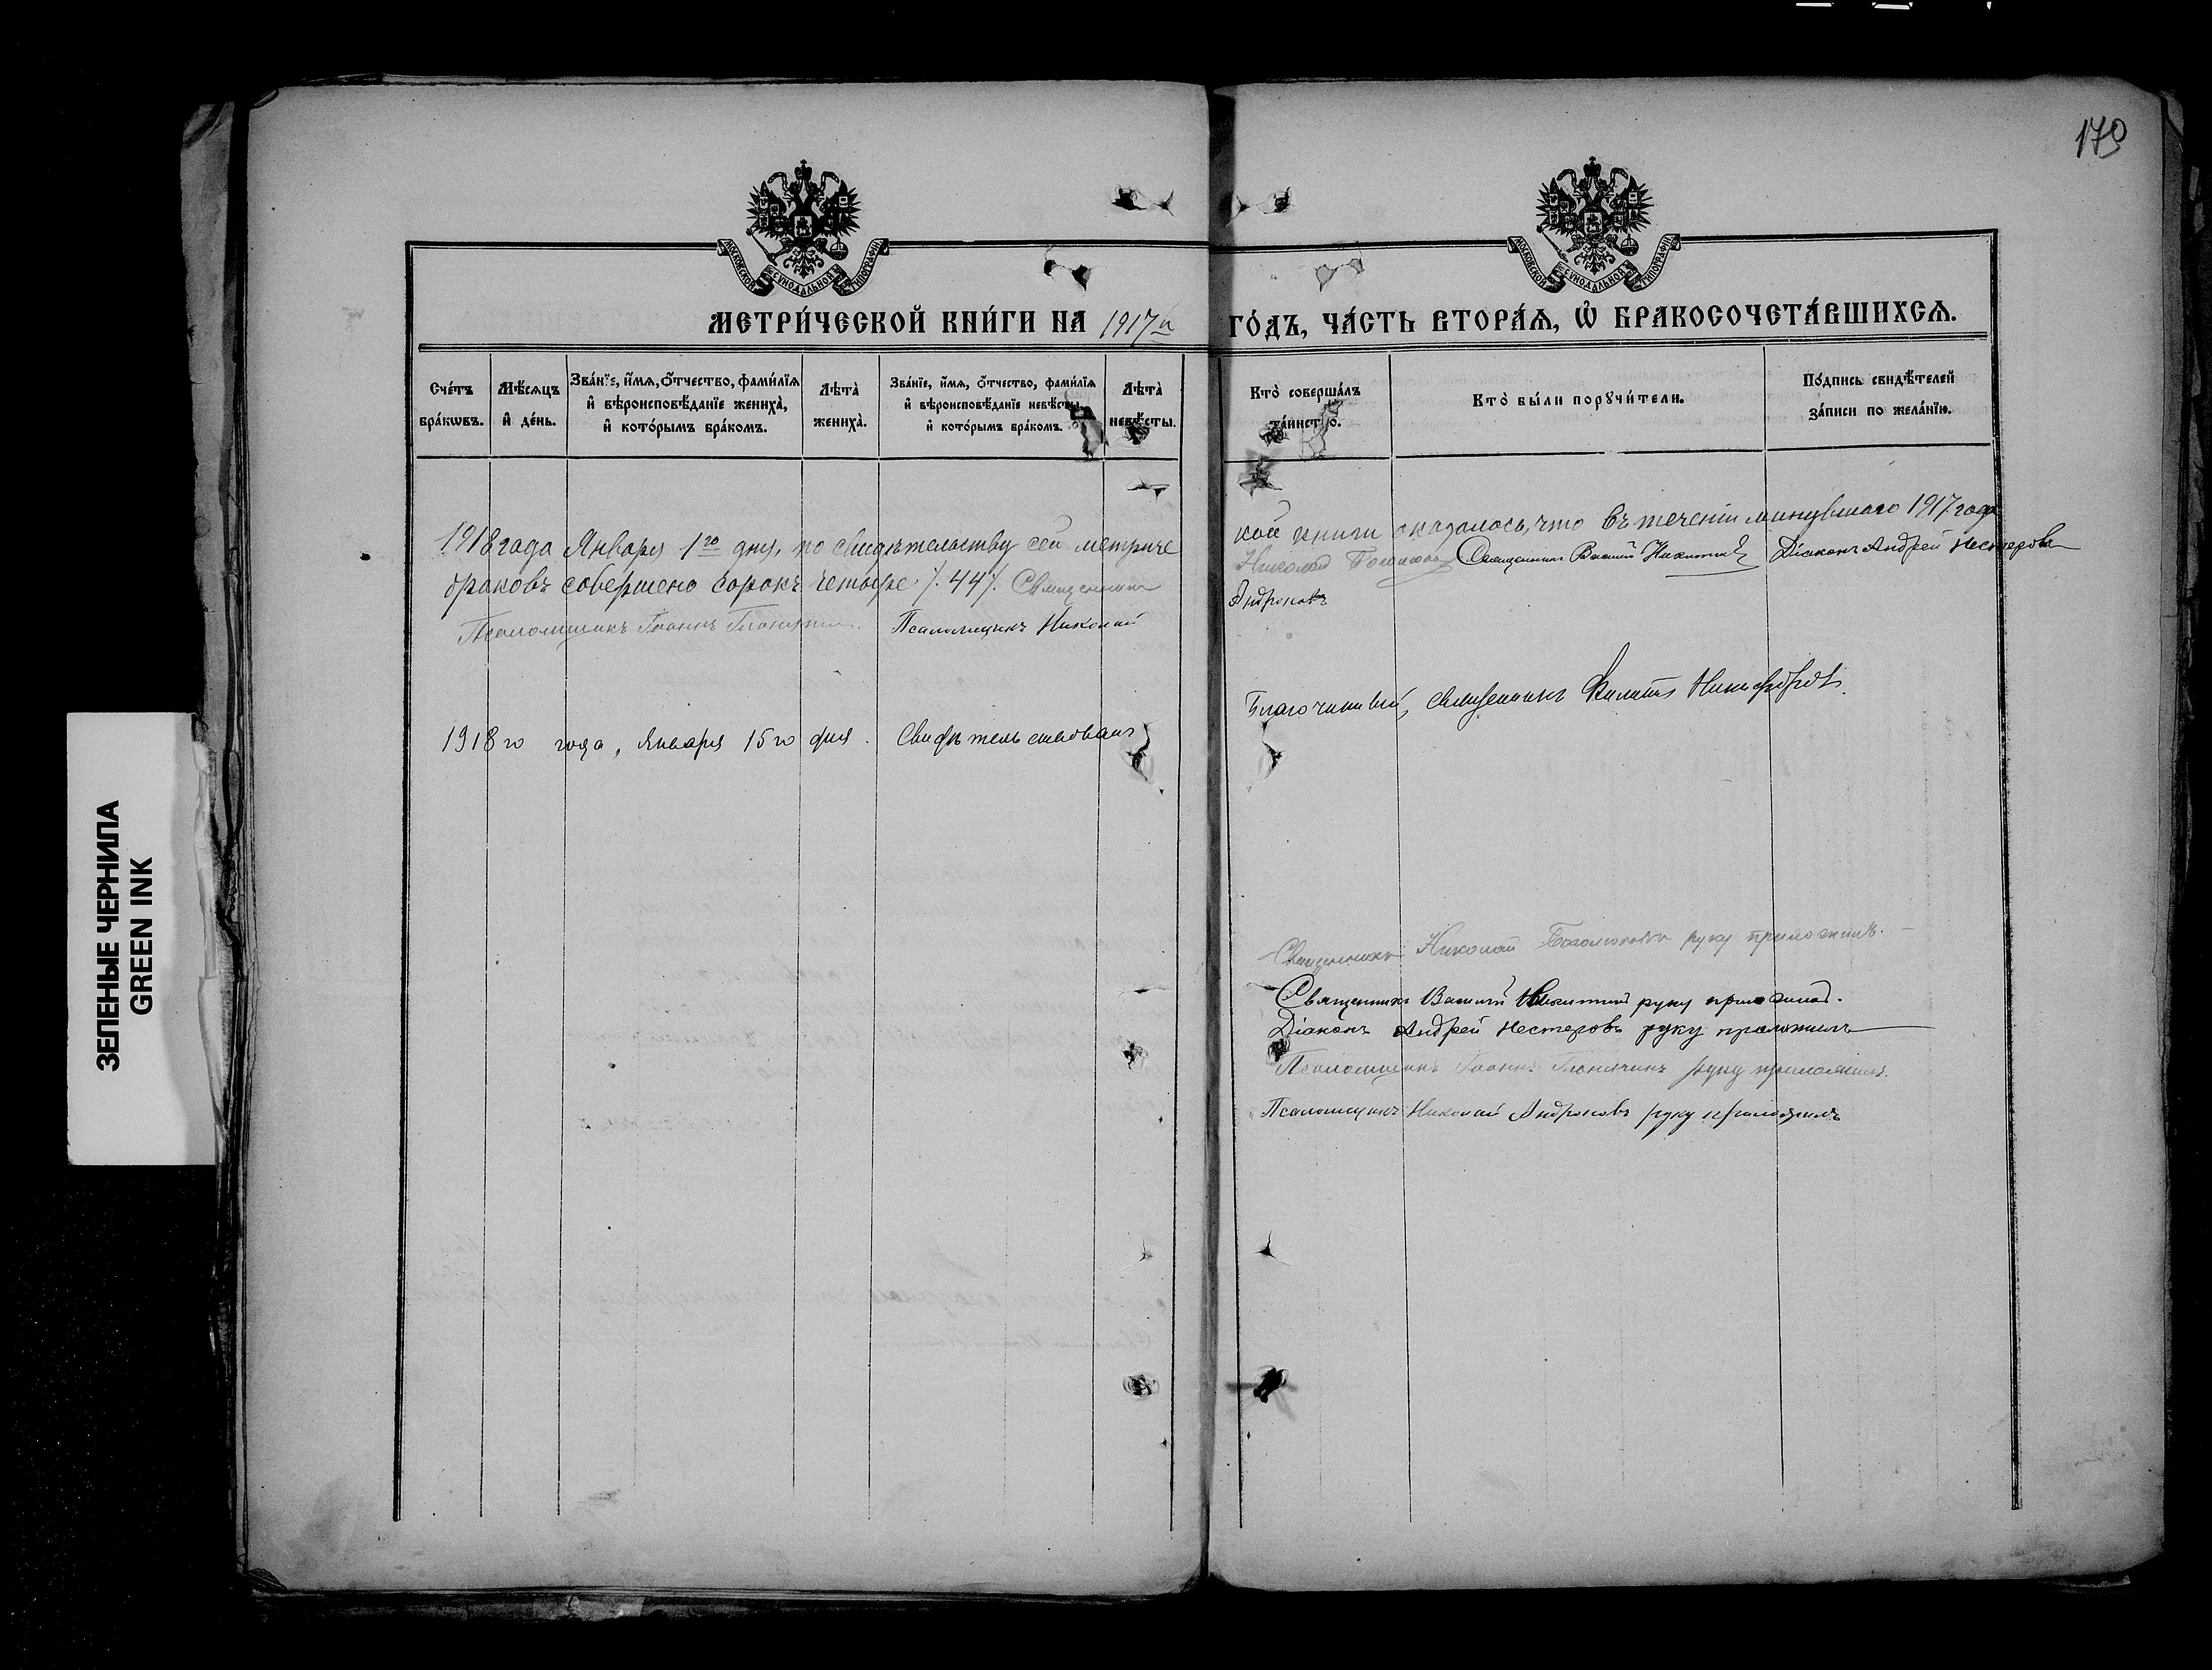 179
МОСКОВСКОЙ СѴНОДАЛЬНОЙ ТИПОГРАФІИ
МОСКОВСКОЙ СѴНОДАЛЬНОЙ ТИПОГРАФІИ
МЕТРИ́ЧЕСКОЙ КНИ́ГИ НА 1917й ГО́ДЪ, ЧА́СТЬ ВТОРА́Ѧ, Ѽ БРАКОСОЧЕТА́ВШИХСѦ.
Сче́тъ бра́кѡвъ.
Мѣ́сѧцъ и҆ де́нь.
Зва́нїе, и҆́мѧ, ѻ҆́тчество, фами́лїѧ и҆ вѣроисповѣ́данїе жениха̀, и҆ кото́рымъ бра́комъ.
Лѣта̀ жениха̀.
Зва́нїе, и҆́мѧ, ѻ҆́тчество, фами́лїѧ и҆ вѣроисповѣ́данїе невѣ́сты, и҆ кото́рымъ бра́комъ.
Лѣта̀ невѣ́сты.
Кто̀ соверша́лъ та́инство.
Кто̀ бы́ли порꙋчи́тели.
По́дпись свидѣ́телей за́писи по жела́нїю.
1918 года Января 1го дня, по свидѣтельству сей метриче
кой книги оказалось, что въ теченіи минувшаго 1917 года
браковъ совершено сорокъ четыре /. 44 /. Священникъ
Николай Священникъ Василій Никитин Діаконъ Андрей Нестеровъ
Псаломщикъ Іоаннъ Псаломщикъ Николай
Андроновъ
1918го года, Января 15го дня. Свидѣтельствовалъ
Благочинный, священникъ Филиппъ Никифоровъ.
Священникъ Николай Боголюбовъ руку приложилъ.
Священникъ Василій Никитин руку приложилъ.
Діаконъ Андрей Нестеровъ руку приложилъ
Псаломщикъ Іоаннъ руку приложилъ.
Псаломщикъ Николай Андроновъ руку приложилъ
ЗЕЛЕНЫЕ ЧЕРНИЛА
GREEN INK